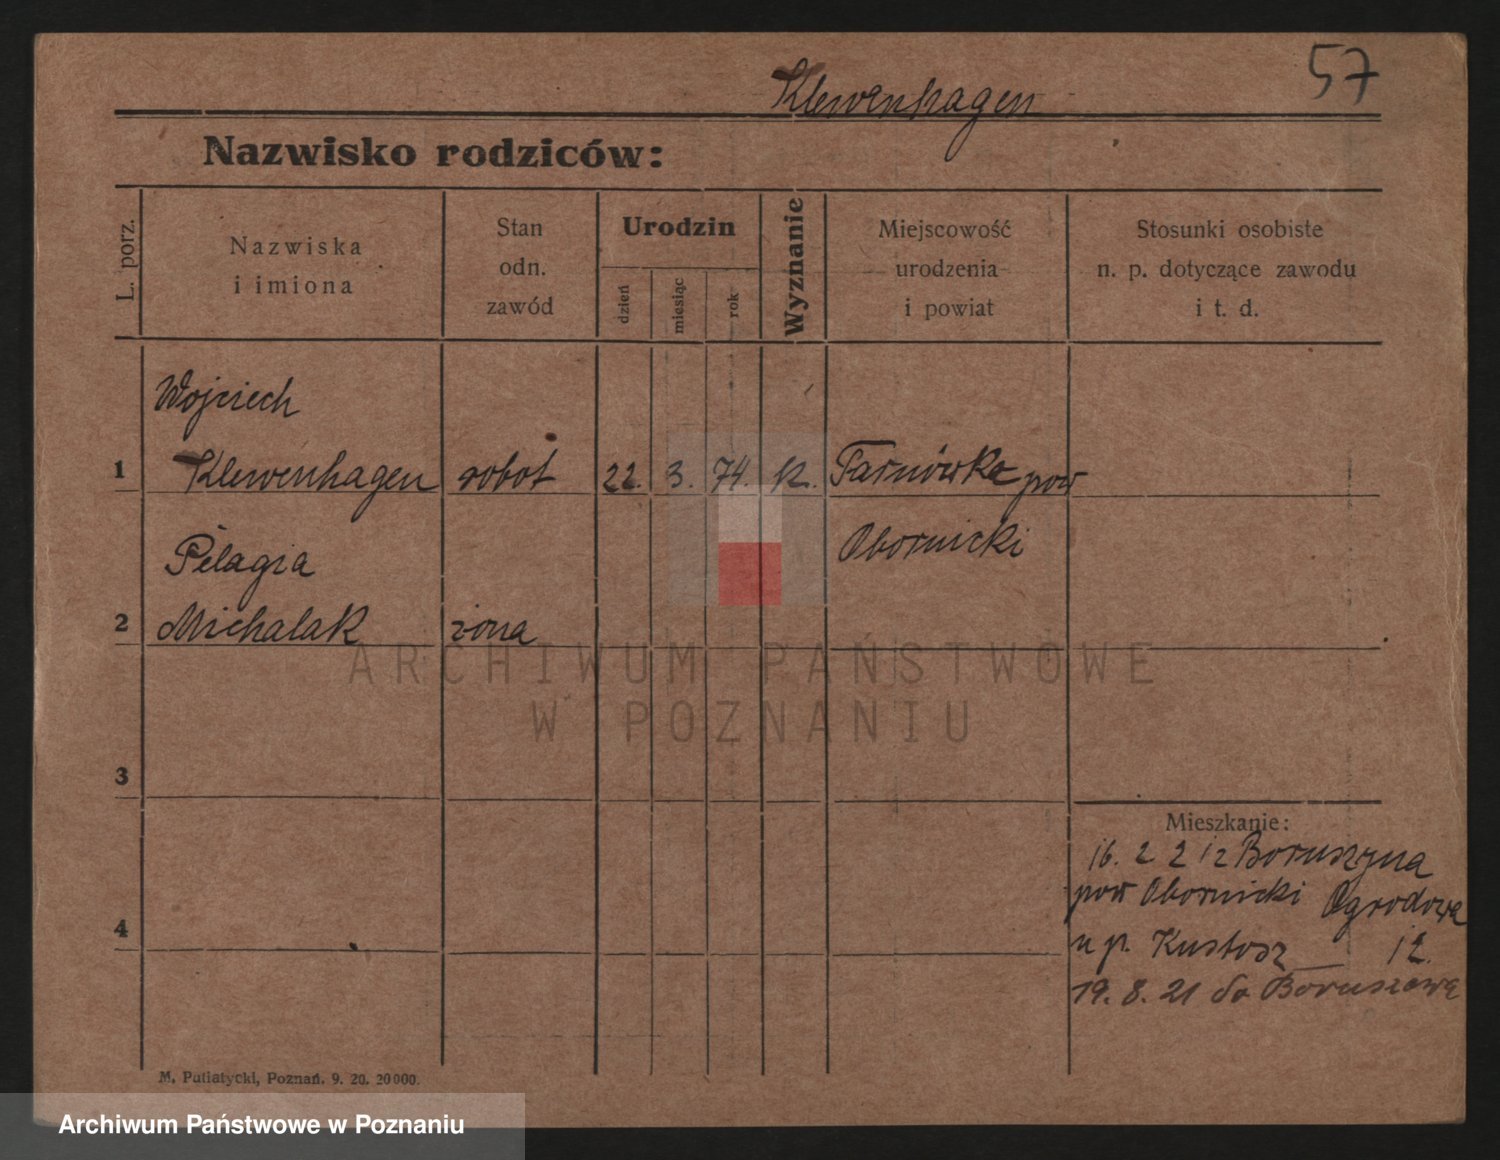 57
Klewenhagen
Nazwisko rodziców:
L. porz.
Nazwiska
i imiona
Stan
odn.
zawód
Urodzin
dzień
miesiąc
rok
Wyznanie
Miejscowość
urodzenia
i powiat
Stosunki osobiste
n. p. dotyczące zawodu
i t. d.
Wojciech
1 Klewenhagen robot 22. 3. 74. k. Tarnówka pow
Obornicki
Pelagia
2 Michalak żona
3
4
Mieszkanie:
16. 2 2 Boruszyna
pow Obornicki Ogrodowa
u p. Kustosz 12.
19. 8. 21 do Boruszewa
M. Putiatycki, Poznań. 9. 20. 20000.
ARCHIWUM PAŃSTWOWE
W POZNANIU
Archiwum Państwowe w Poznaniu